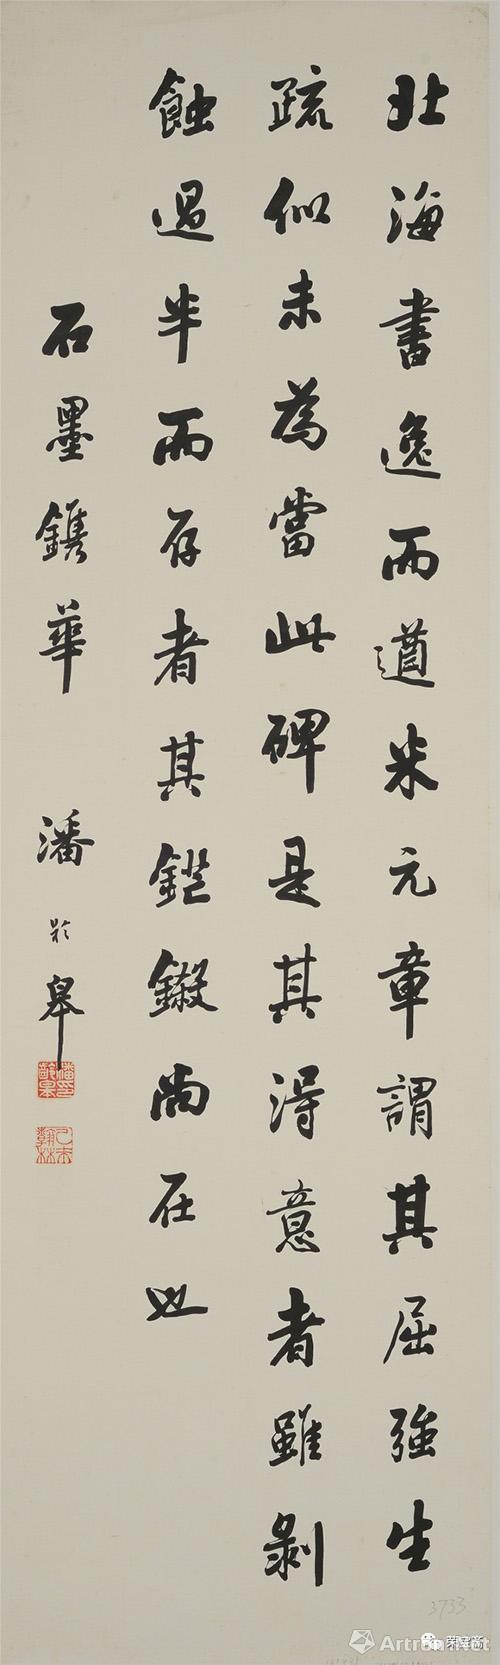 北海書逸而遒米元章謂其屈強生
疏似未為當此碑是其得意者雖剝
蝕過半而存者其鋩鎩尚在也
石墨鐫華 潘齡皋
潘印齡皋
乙未翰林
3733
荣宝斋
Artron.Net